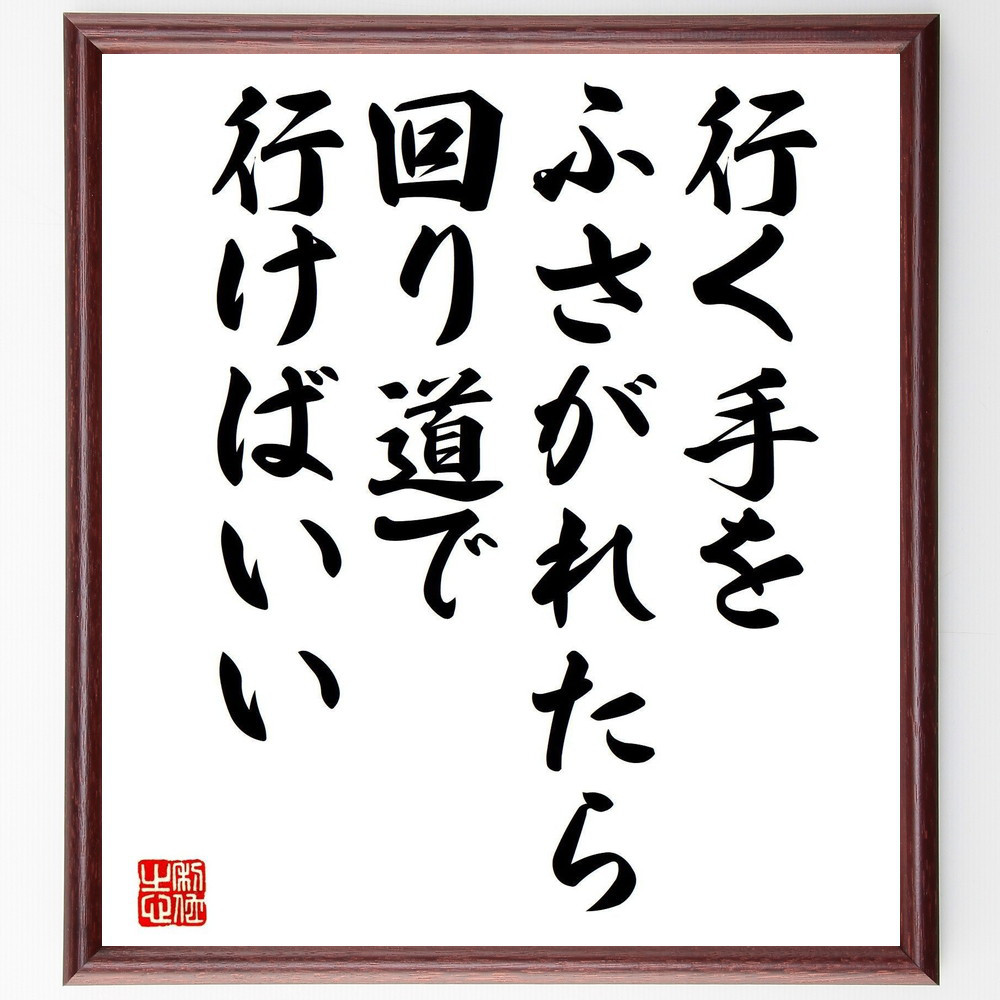 行く手を
ふさがれたら
回り道で
行けばいい